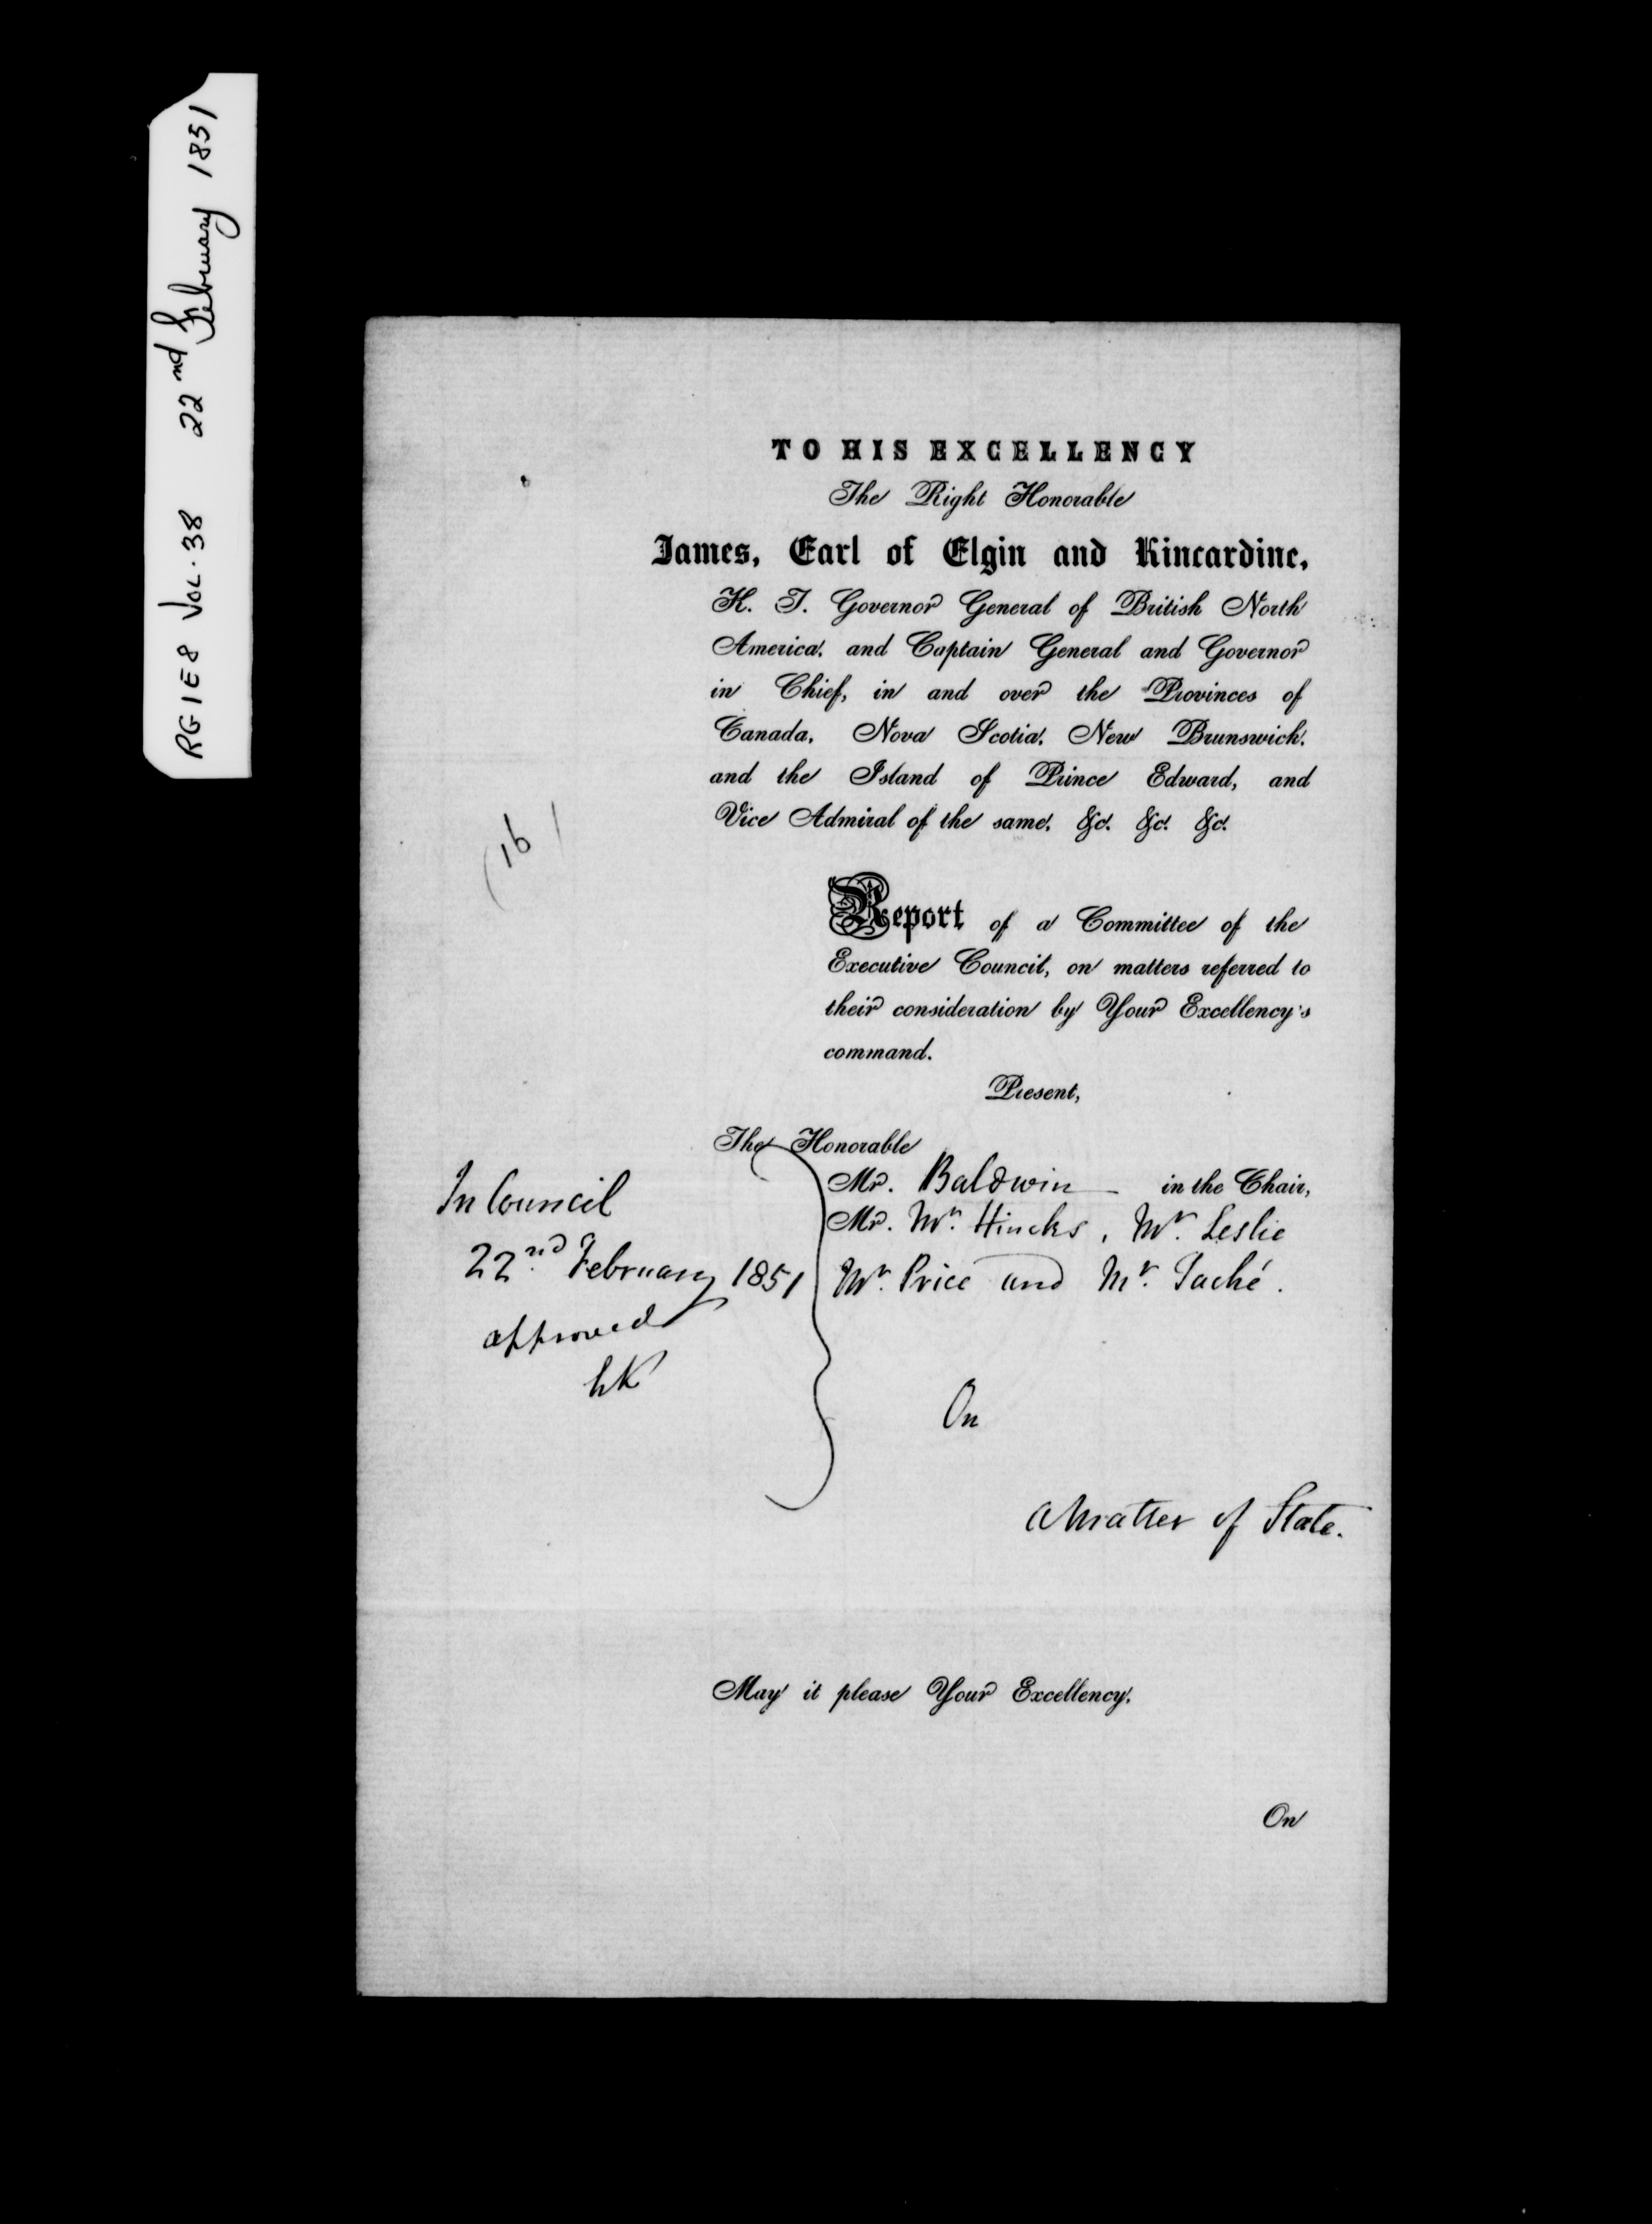 RG1E8 VOL. 38 22nd February 1851
TO HIS EXCELLENCY
The Right Honorable
James, Earl of Elgin and Kincardine,
K. T. Governor General of British North
America, and Captain General and Governor
in Chief, in and over the Provinces of
Canada, Nova Scotia, New Brunswick,
and the Island of Prince Edward, and
Vice Admiral of the same, &c. &c. &c.
(16)
Report of a Committee of the
Executive Council, on matters referred to
their consideration by Your Excellency's
command.
Present,
The Honorable
Mr. Baldwin in the Chair,
Mr. Mr. Hincks, Mr. Leslie
Mr. Price and Mr. Taché.
In Council
22nd February 1851
approved
On
a Matter of State.
May it please Your Excellency,
On